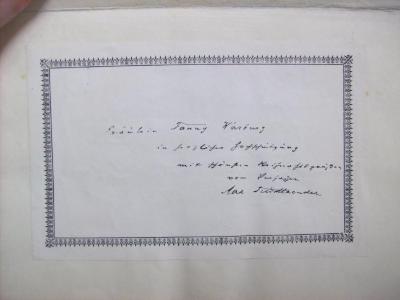 Fräulein Fanny Warburg
in herzlicher Hochschätzung
mit schönsten Weihnachtsgrüßen
vom Verfasser
Max Friedlaender